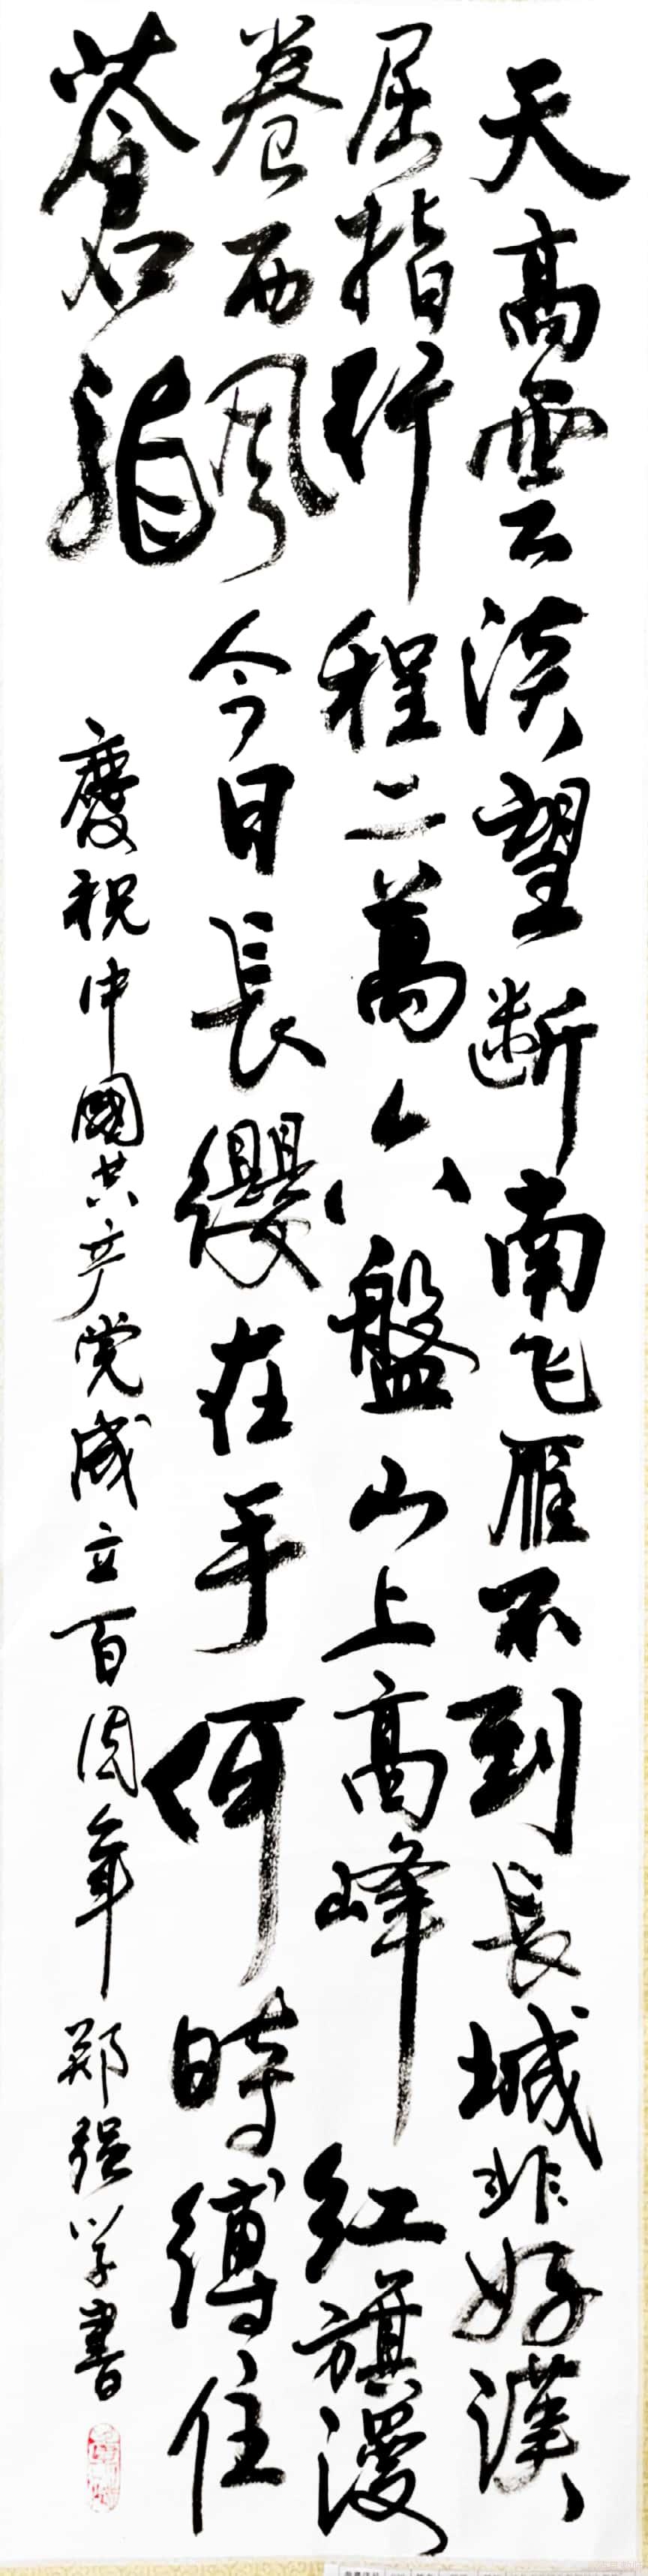 天高雲淡望断南飞雁不到長城非好漢
屈指行程二萬六盤山上高峰紅旗漫
卷西風今日長纓在手何時縛住
蒼龍
慶祝中國共产党成立百周年 郑强学書